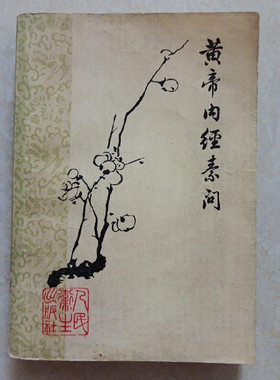 黄帝内經素问
人民
衛生
出版社